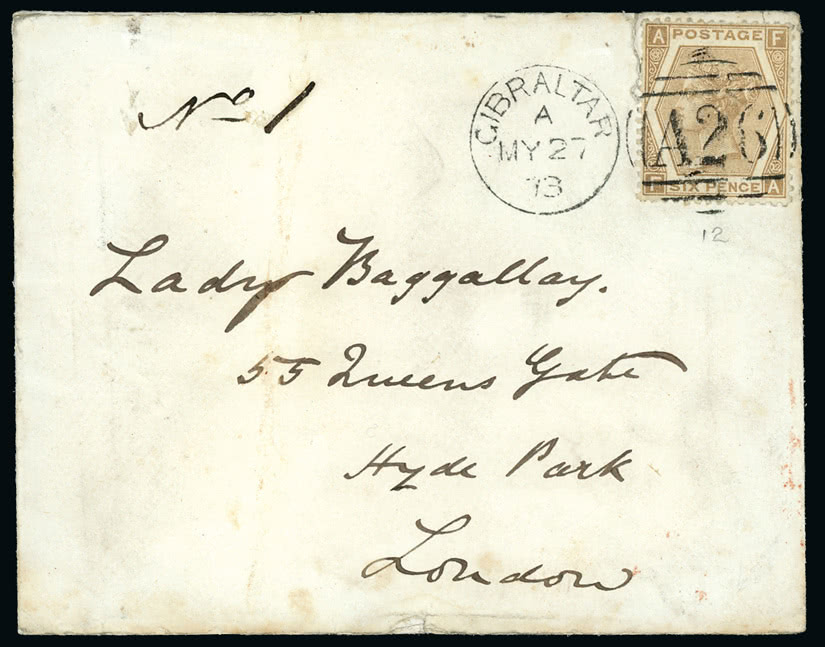 A POSTAGE F
GIBRALTAR
A
MY 27
73
A26
F SIX PENCE A
12
No 1
Lady Baggallay.
55 Queens Gate
Hyde Park
London